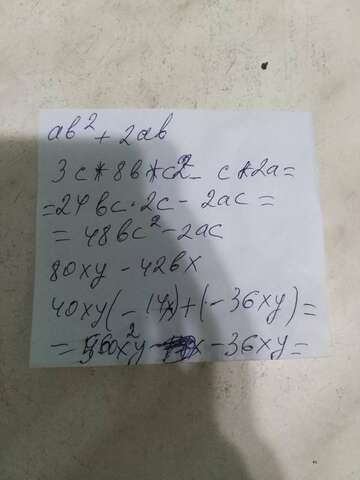 ab² + 2ab
3c*8b*c2 - c*2a=
=24bc·2c - 2ac =
= 48bc² - 2ac
80xy - 42bx
40xy(-14x)+(-36xy)=
= 560x²y - x - 36xy=